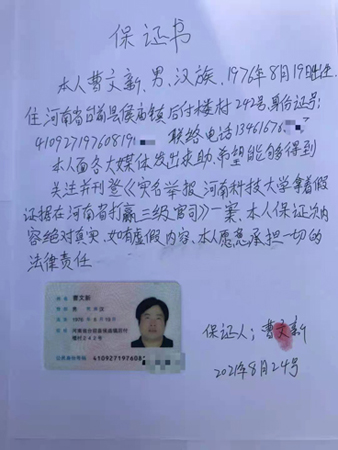 保证书
本人曹文新、男、汉族、1976年8月19日生.
住河南省台前县侯庙镇后付楼村242号身份证号:
41092719760819 联络电话1346167
本人面各大媒体发出求助、希望能够得到
关注并刊登《实名举报河南科技大学拿着假
证据在河南省打赢三级官司》一案、本人保证次内
容绝对真实、如有虚假内容、本人愿意承担一切的
法律责任
姓名 曹文新
性别 男 民族 汉
出生 1976年8月19日
住址 河南省台前县侯庙镇后付
楼村242号
公民身份号码 410927197608
保证人:曹文新
2021年8月24号